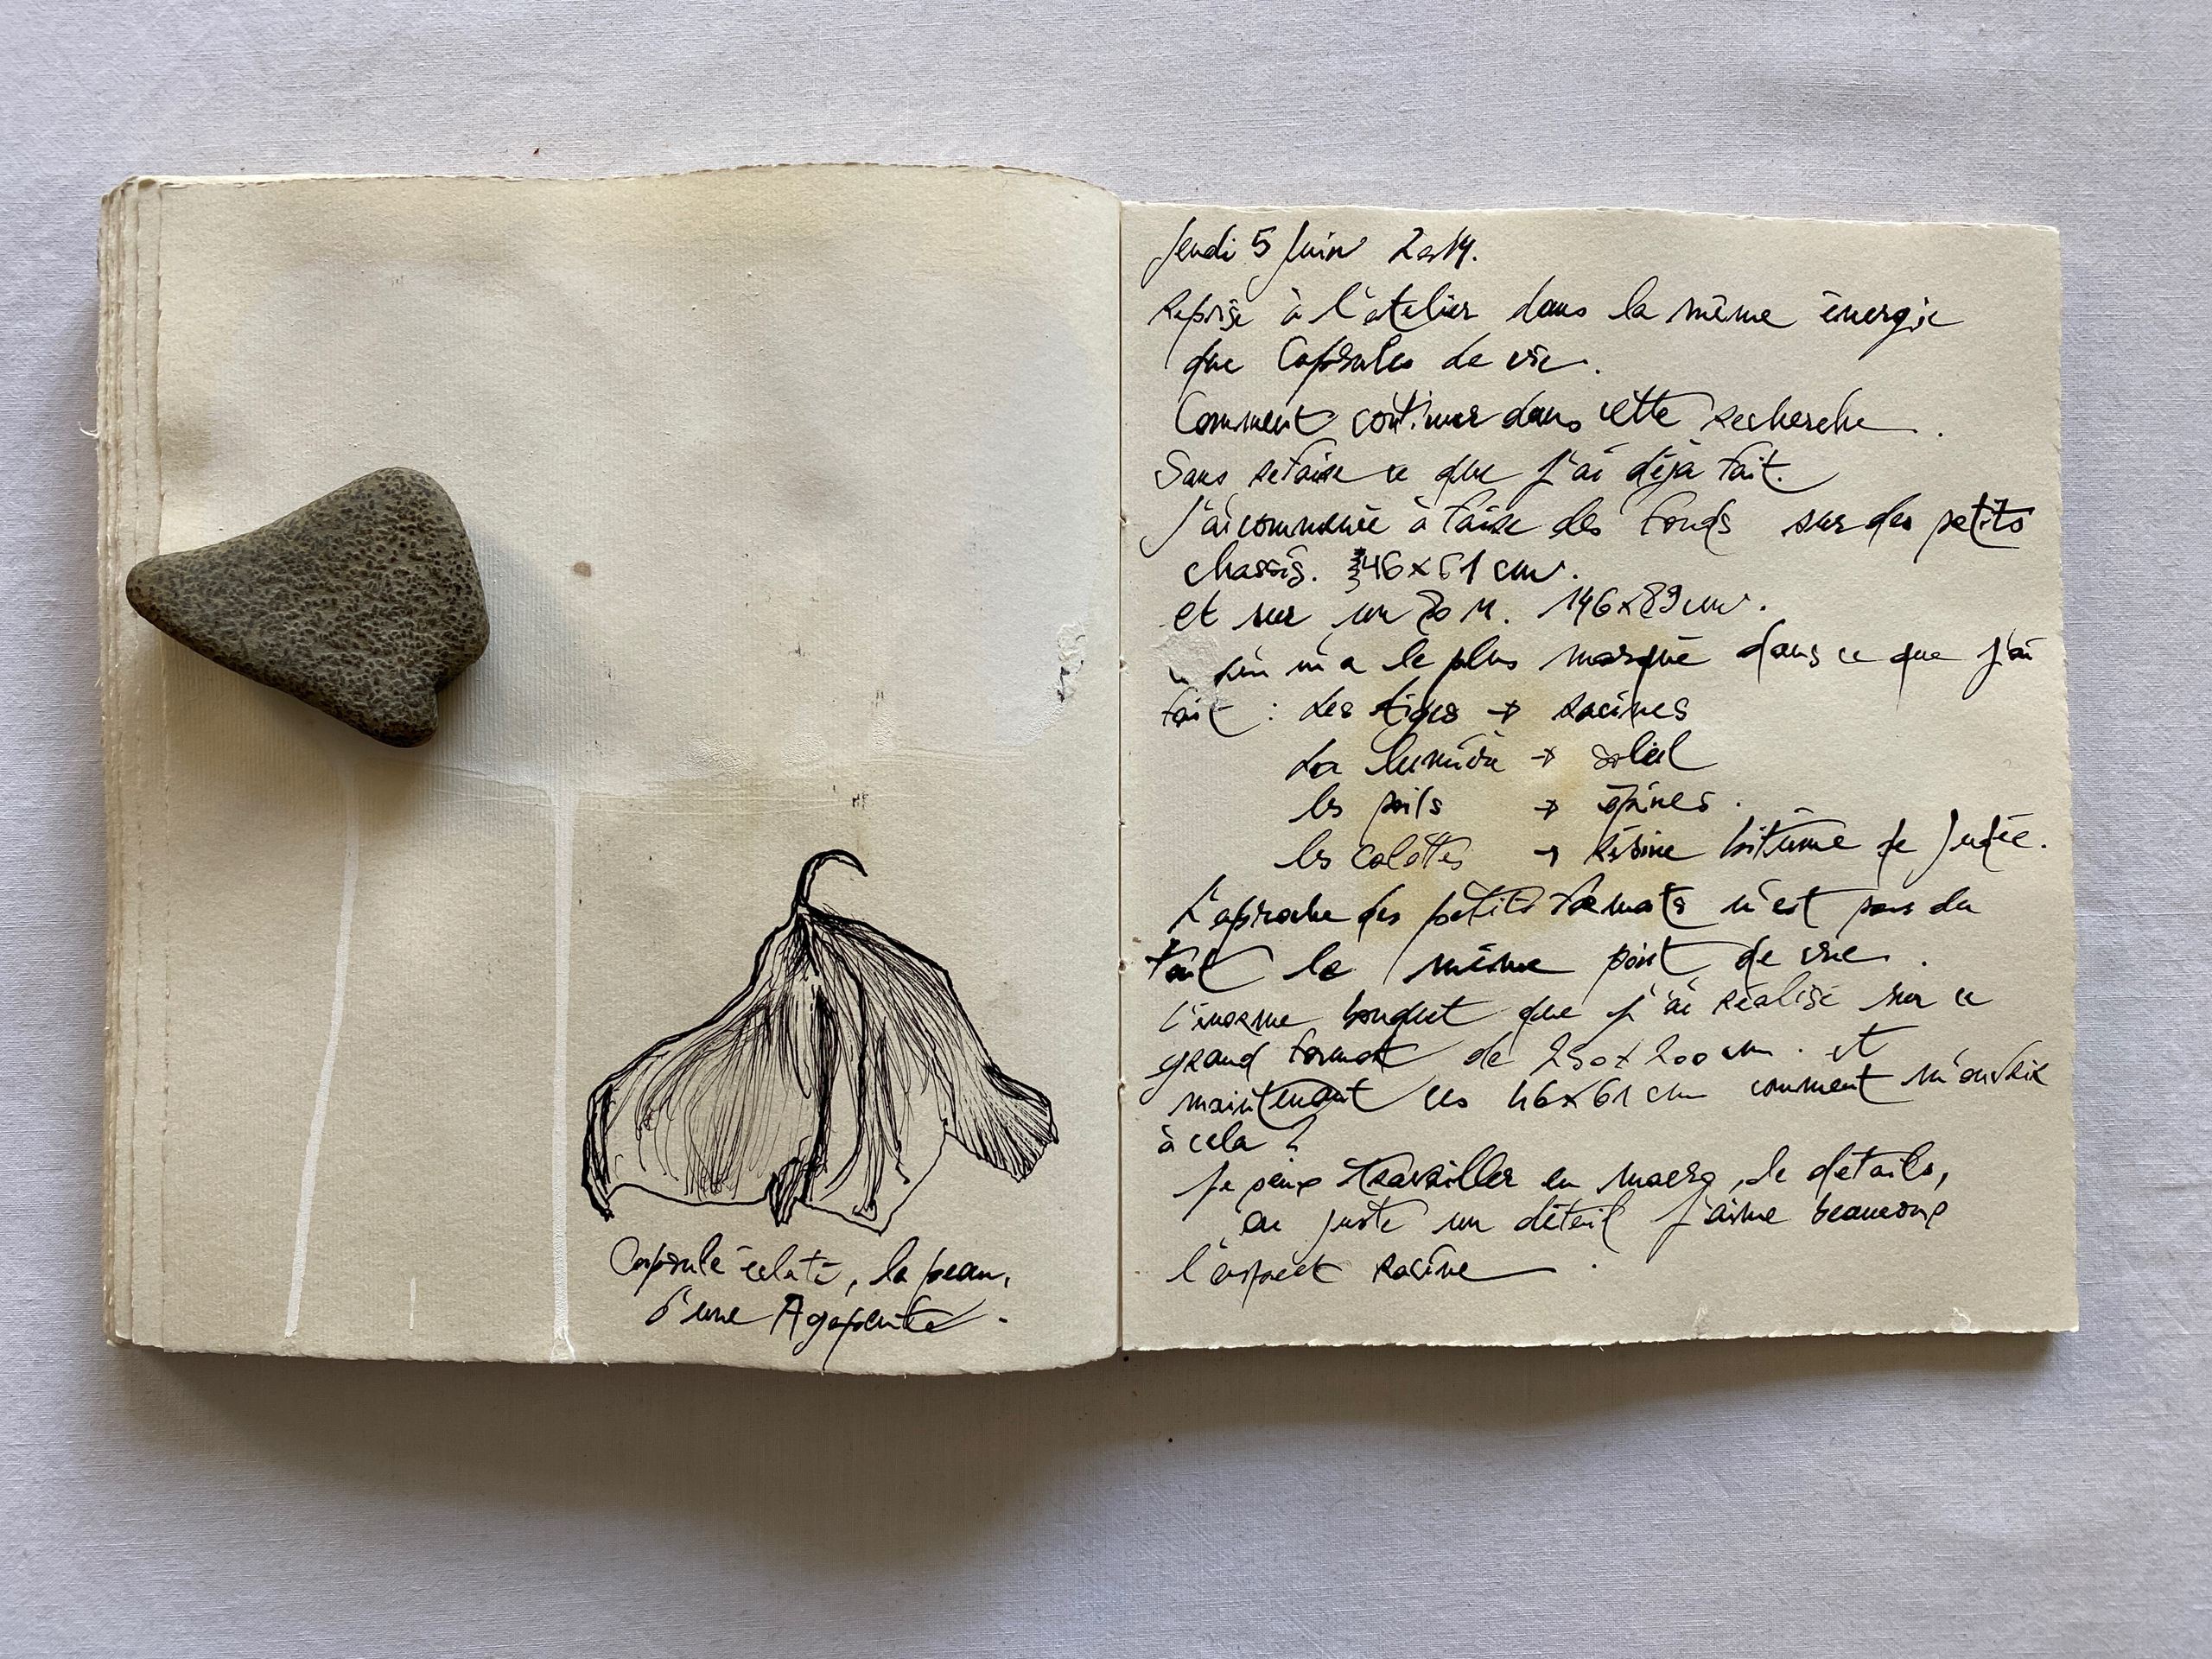 Capsule éclatée, la peau,
d'une Agapanthe.
Jeudi 5 Juin 2014.
Reprise à l'atelier dans la même énergie
que Capsules de vie.
Comment continuer dans cette recherche.
Sans refaire ce que j'ai déjà fait.
J'ai commencé à faire des fonds sur des petits
chassis. 46x61 cm.
et sur un 80 M. 146x89cm.
qui m'a le plus marqué dans ce que j'ai
fait : Les tiges → racines
La lumière → soleil
les poils → épines.
les calottes → Résine bitume de Judée.
L'aproche des petits formats n'est pas du
tout le même point de vue.
L'énorme bouquet que j'ai réalisé sur ce
grand format de 250x200 cm. et
maintenant ces 46x61 cm comment m'ouvrir
à cela ?
Je peux travailler en macro, de détails,
ou juste un détail j'aime beaucoup
l'aspect racine.